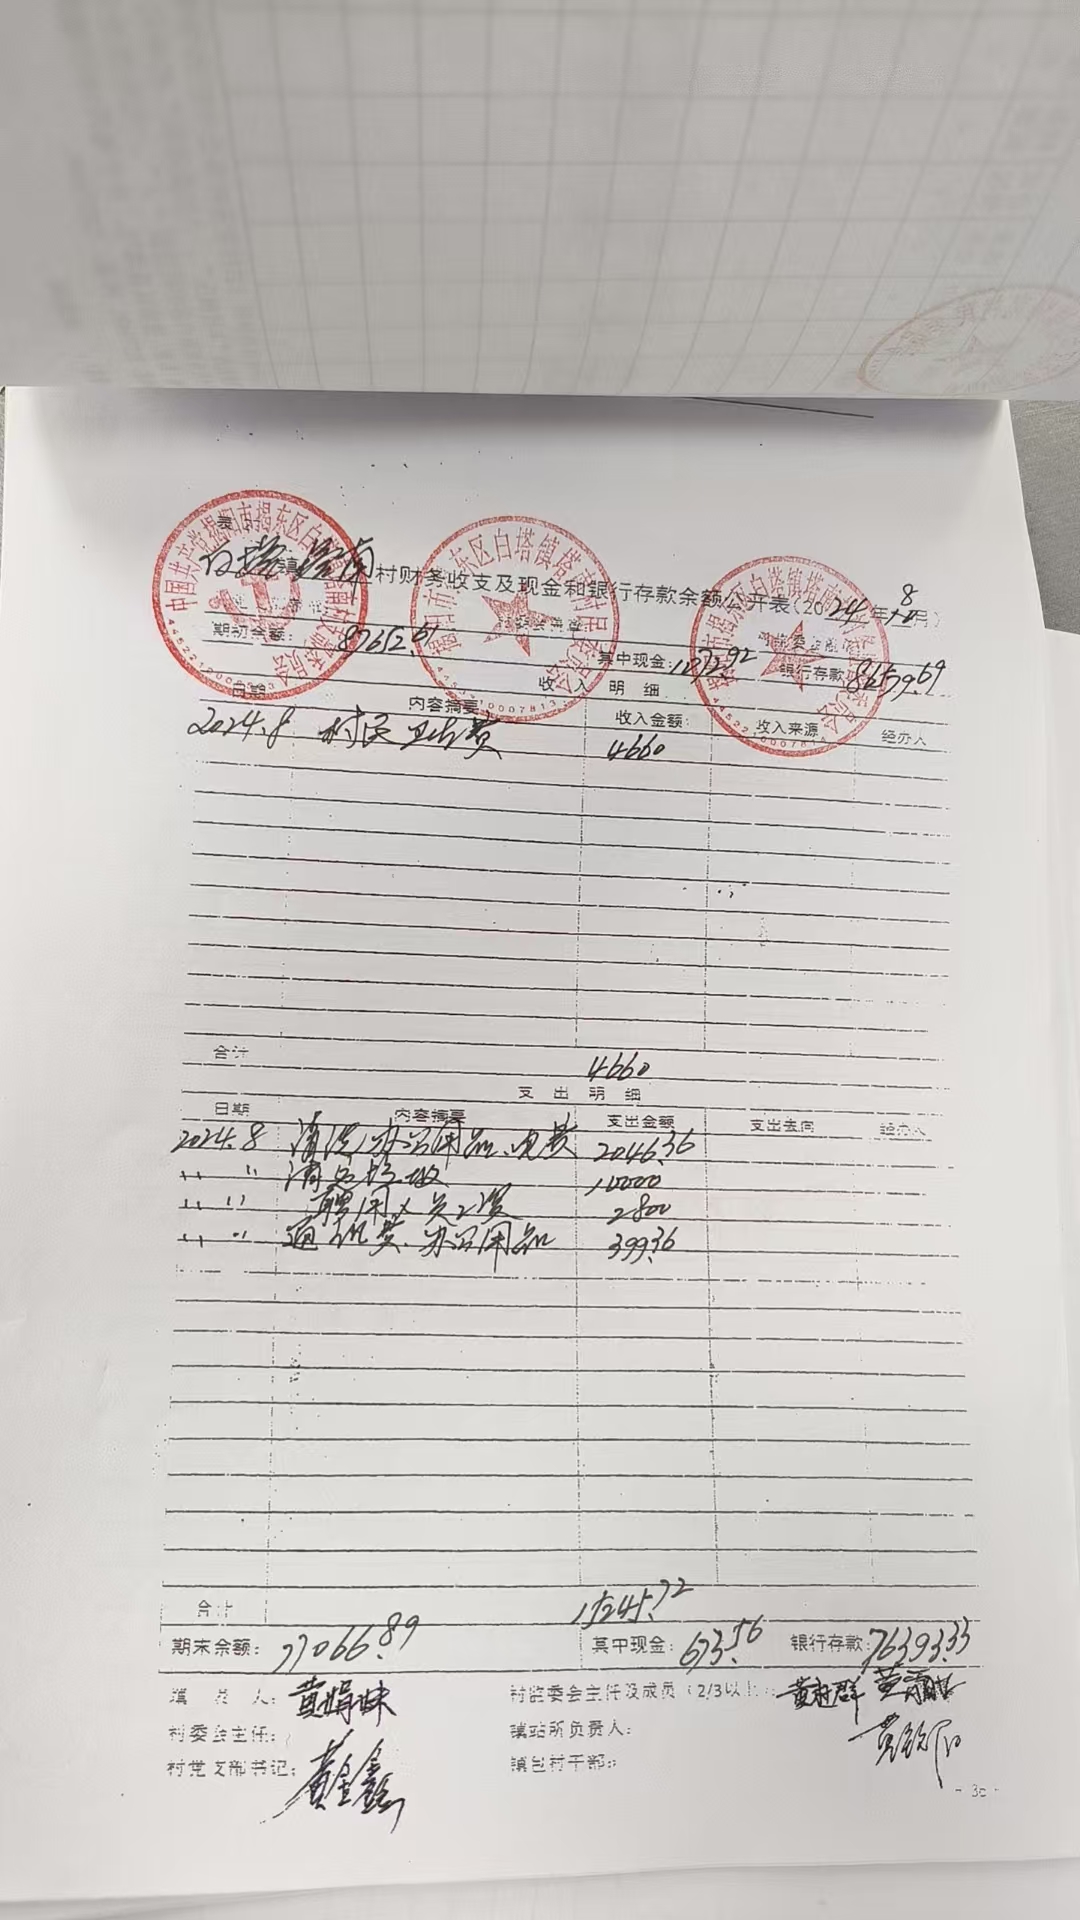 白塔镇塔南村财务收支及现金和银行存款余额公开表(2024年8月)
期初余额: 87652.61 其中现金: 1192.92 银行存款: 86459.69
收入明细
日期 内容摘要 收入金额: 收入来源 经办人
2024.8 村民卫生费 4660
合计 4660
支出明细
日期 内容摘要 支出金额 支出去向 经办人
2024.8 清洁办公用品、电费 2046.36
〃 〃 清运垃圾 10000
〃 〃 聘用人员工资 2800
〃 〃 通讯费、办公用品 399.36
合计 15245.72
期末余额: 77066.89 其中现金: 673.56 银行存款: 76393.33
填表人: 黄娟妹 村监委会主任及成员(2/3以上):
村委会主任: 镇站所负责人:
村党支部书记: 黄金鑫 镇包村干部: